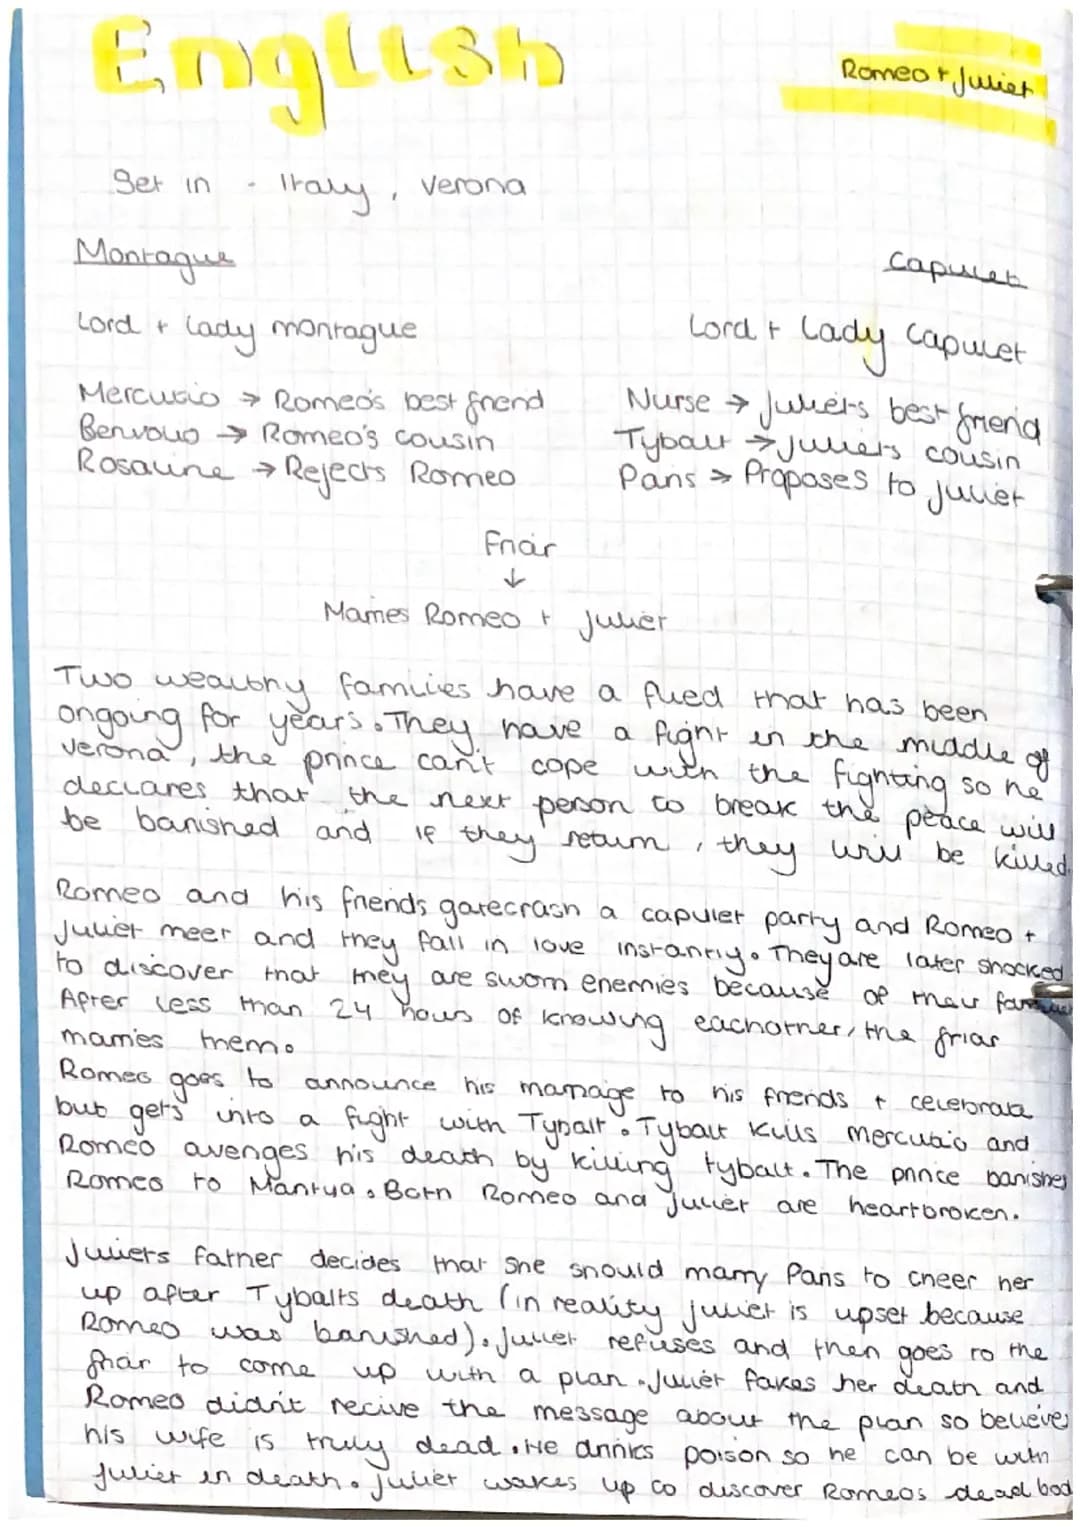 English
Romeo + Juliet
Set in - Italy, Verona
Montague
Capulet
Lord + Lady montague
Lord + Lady Capulet
Mercutio → Romeo's best friend
Benvolio → Romeo's cousin
Rosaline → Rejects Romeo
Nurse → Juliet's best friend
Tybalt → Juliet's cousin
Paris → Proposes to Juliet
Friar
↓
Marries Romeo + Juliet
Two wealthy families have a fued that has been
ongoing for years. They have a fight in the middle of
verona, the prince can't cope with the fighting so he
declares that the next person to break the peace will
be banished and if they return, they will be killed.
Romeo and his friends gatecrash a capulet party and Romeo +
Juliet meet and they fall in love instantly. They are later shocked
to discover that they are sworn enemies because of their
After less than 24 hours of knowing eachother, the friar
marries them.
Romeo goes to announce his marriage to his friends + celebrate
but gets into a fight with Tybalt. Tybalt kills Mercutio and
Romeo avenges his death by killing tybalt. The prince banishes
Romeo to Mantua. Both Romeo and Juliet are heartbroken.
Juliets father decides that she should marry Paris to cheer her
up after Tybalts death (in reality juliet is upset because
Romeo was banished). Juliet refuses and then goes to the
friar to come up with a plan. Juliet fakes her death and
Romeo didn't recive the message about the plan so believes
his wife is truly dead. He drinks poison so he can be with
Juliet in death. Juliet wakes up to discover Romeos dead bod